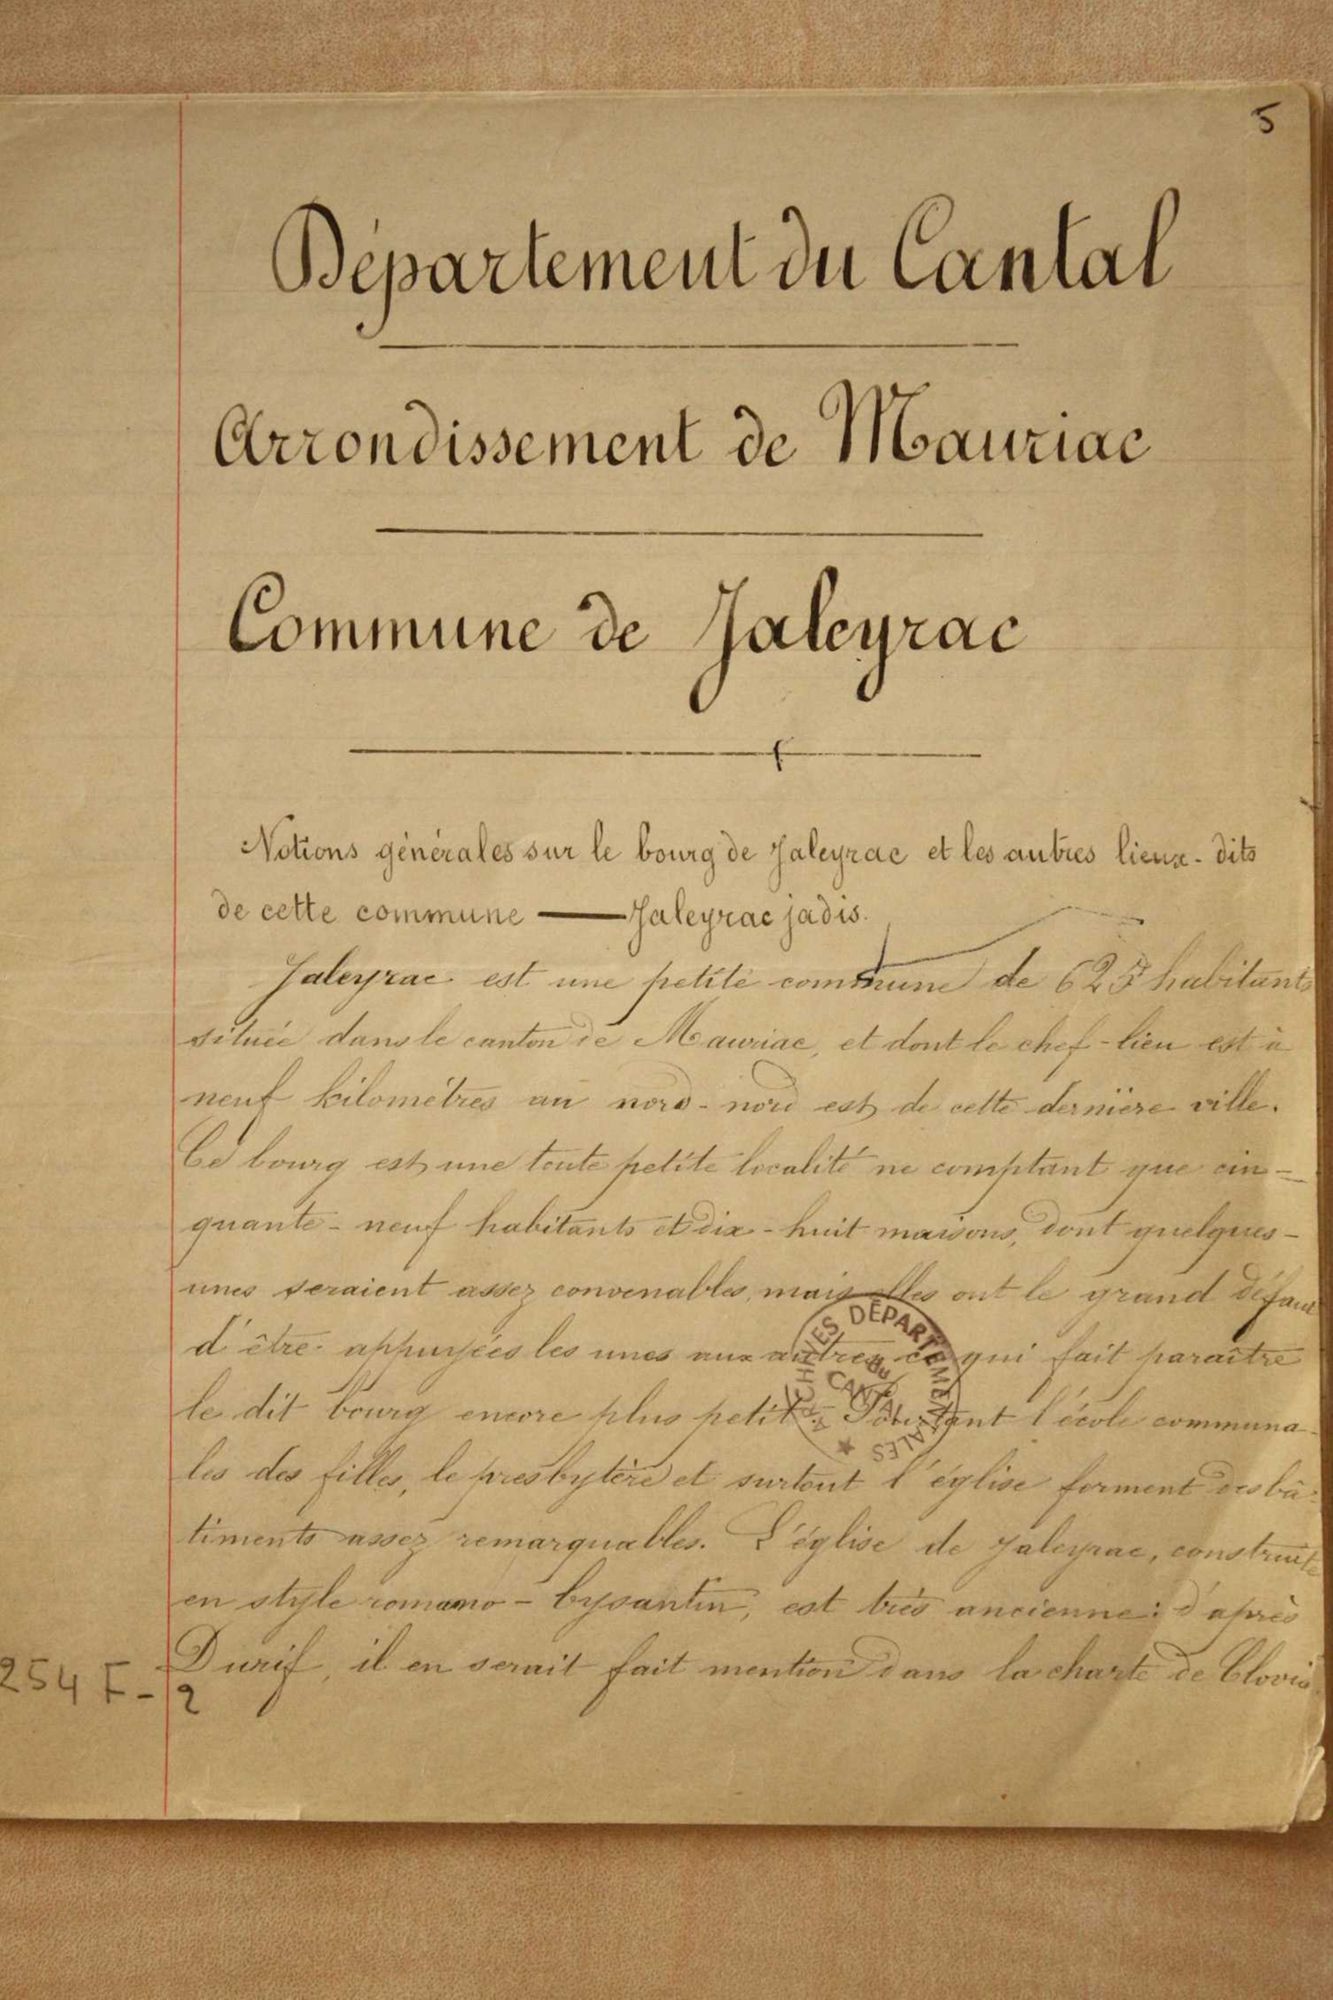 5
Département du Cantal
Arrondissement de Mauriac
Commune de Jaleyrac
Notions générales sur le bourg de Jaleyrac et les autres lieux-dits
de cette commune — Jaleyrac jadis.
Jaleyrac est une petite commune de 625 habitants
située dans le canton de Mauriac, et dont le chef-lieu est à
neuf kilomètres au nord-nord est de cette dernière ville.
Ce bourg est une toute petite localité ne comptant que cin-
quante-neuf habitants et dix-huit maisons, dont quelques-
unes seraient assez convenables, mais elles ont le grand défaut
d'être appuyées les unes aux autres ce qui fait paraître
le dit bourg encore plus petit. Pourtant l'école communa-
les des filles, le presbytère et surtout l'église forment des bâ-
timents assez remarquables. L'église de Jaleyrac, construite
en style romano-bysantin, est très ancienne: d'après
Durif, il en serait fait mention dans la charte de Clovis
254 F-2
ARCHIVES DÉPARTEMENTALES
du
CANTAL